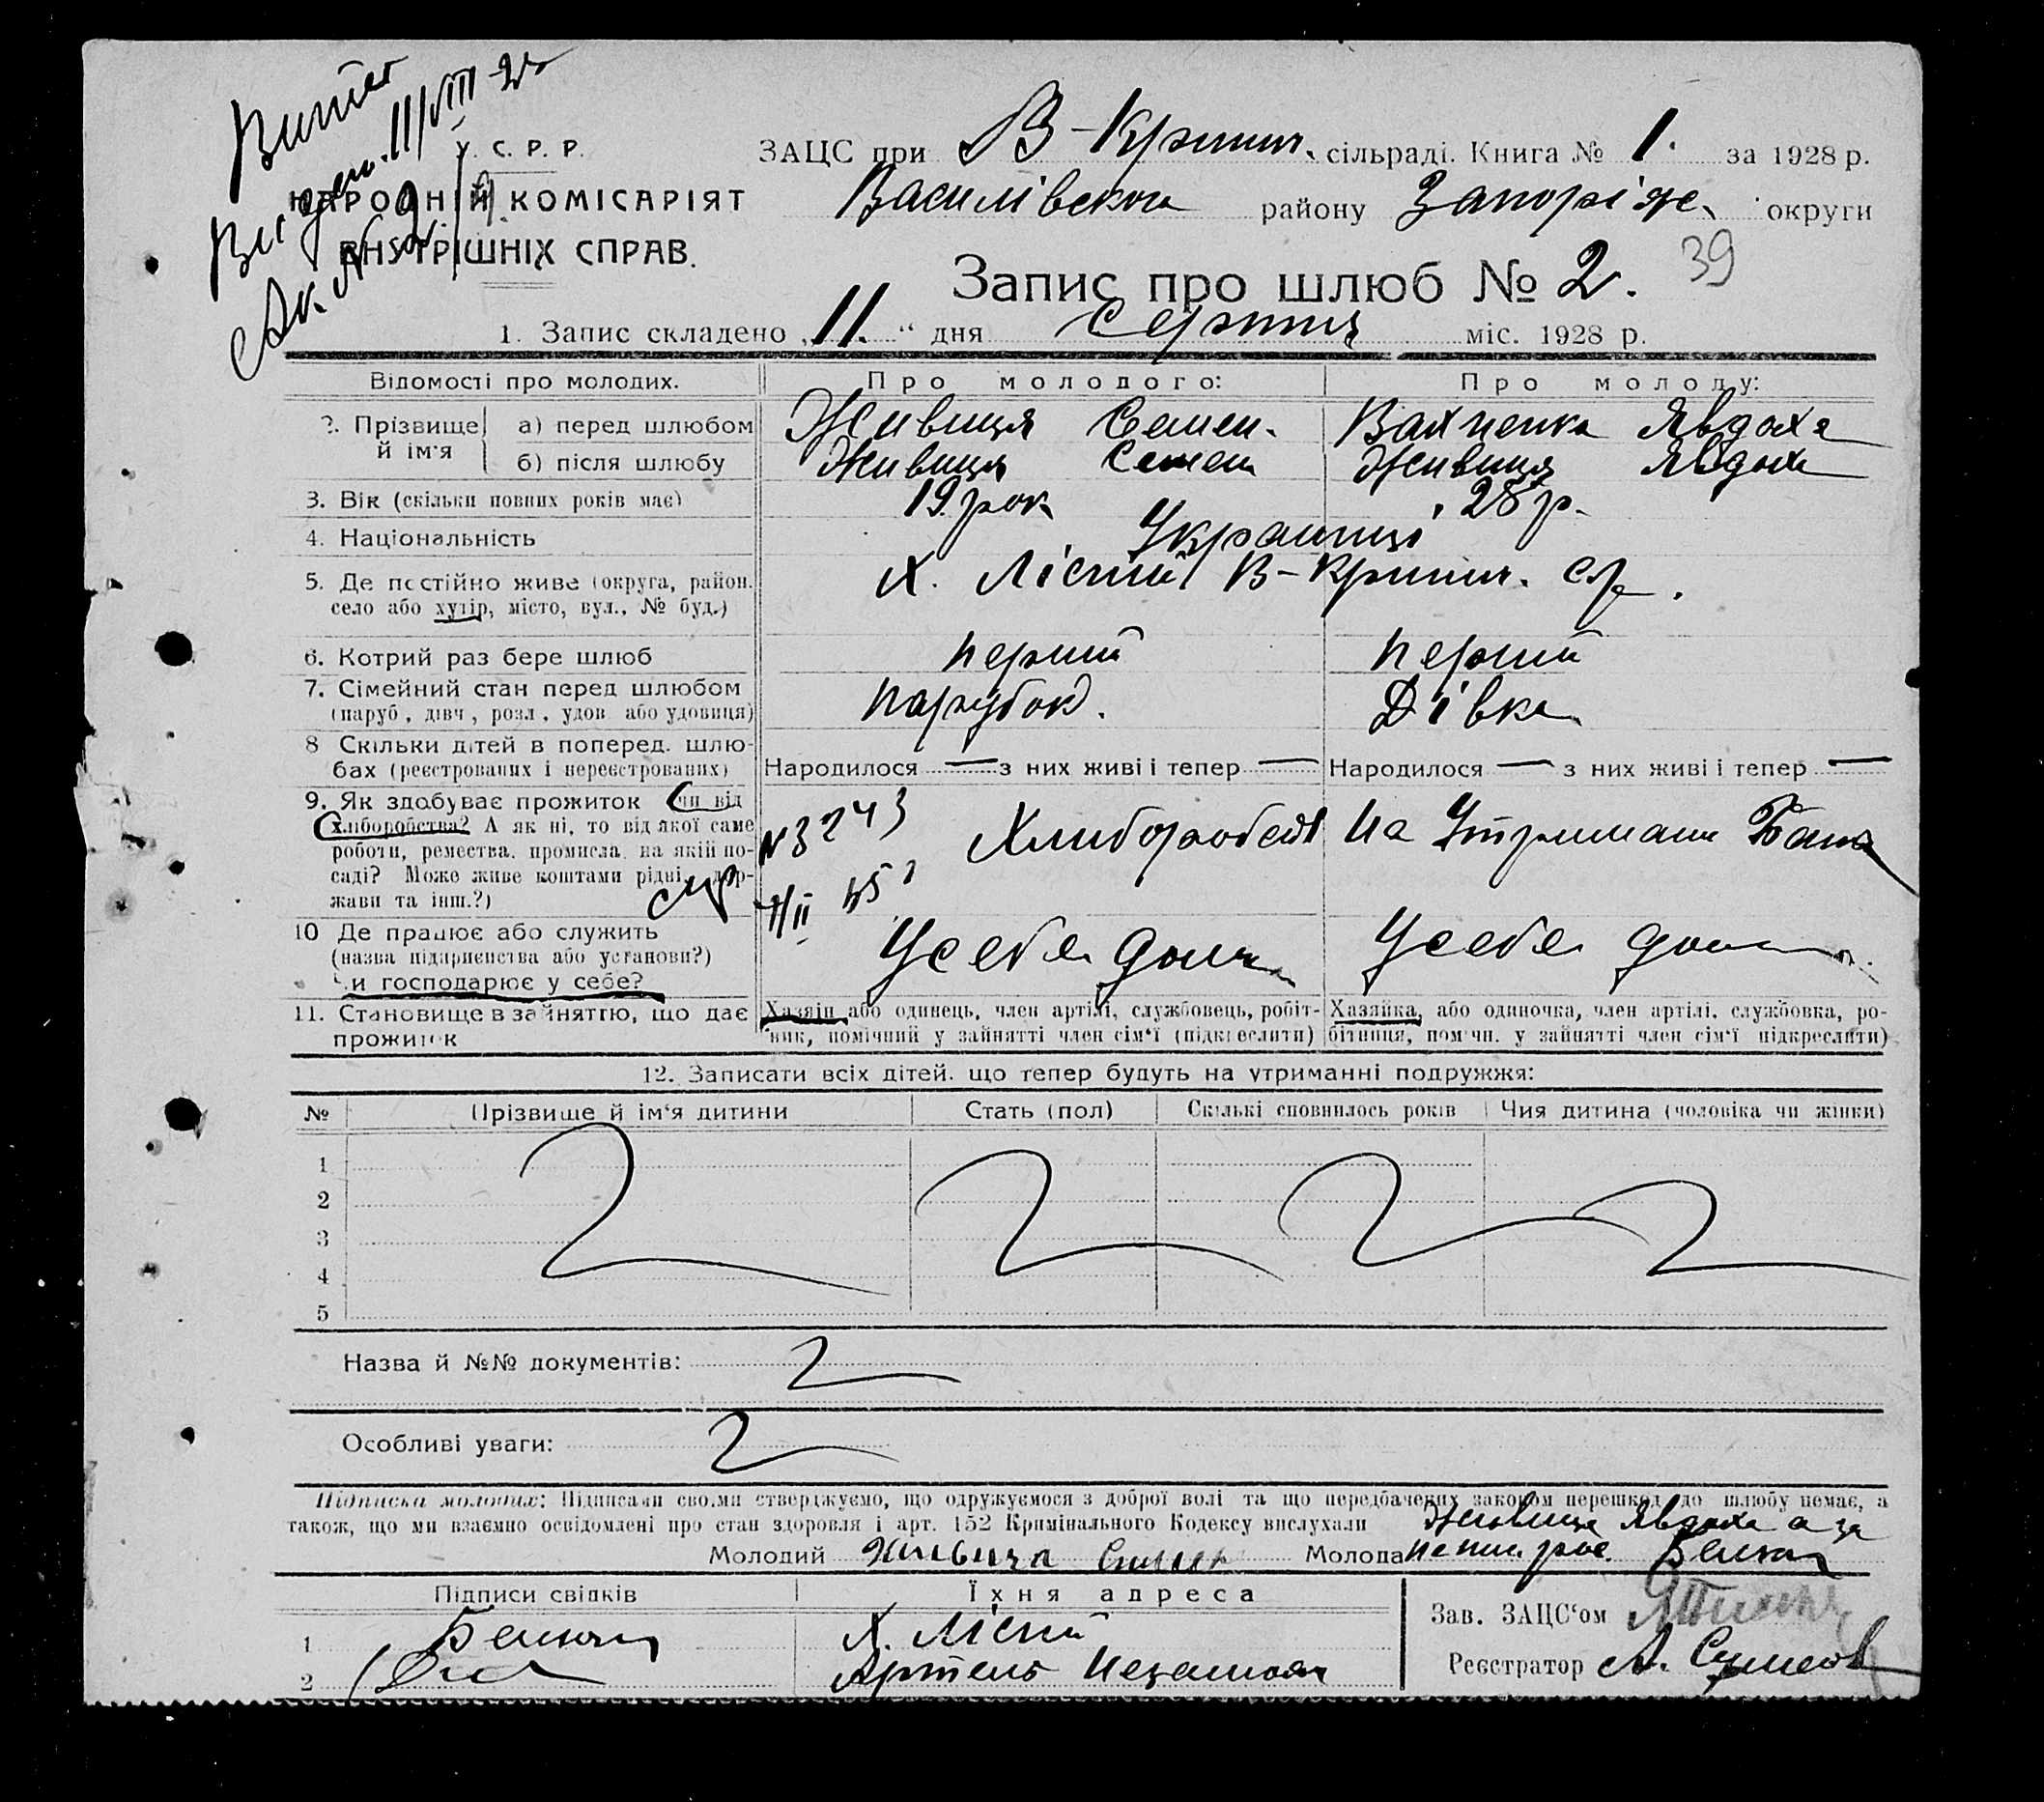 Витяг
Видано. 11/VIII-28
Ак. № 2
У. С. Р. Р.
НАРОДНІЙ КОМІСАРІЯТ
ВНУТРІШНІХ СПРАВ.
ЗАЦС при В-Кринич. сільраді. Книга № 1. за 1928 р.
Василівського району Запоріж. округи
Запис про шлюб № 2. 39
1. Запис складено „11“ дня Серпня міс. 1928 р.
Відомості про молодих. Про молодого: Про молоду:
2. Прізвище й ім'я а) перед шлюбом Живиця Семен. Вахненко Явдоха
б) після шлюбу Живиця Семен Живиця Явдоха
3. Вік (скільки повних років має) 19 рок 28 р.
4. Національність Українці
5. Де постійно живе (округа, район, Х. Лісний В-Кринич. с/р.
село або хутір, місто, вул., № буд.)
6. Котрий раз бере шлюб перший перший
7. Сімейний стан перед шлюбом парубок. Дівка
(паруб, дівч, розл, удов або удовиця)
8 Скільки дітей в поперед. шлю-
бах (реєстрованих і нереєстрованих) Народилося — з них живі і тепер — Народилося — з них живі і тепер —
9. Як здобуває прожиток (чи від
хліборобства? А як ні, то від якої саме № 3243 Хліборобств На Утриманні Бат
роботи, ремества, промисла, на якій по-
саді? Може живе коштами рідні, дер-
жави та інш.?)
10 Де працює або служить У себе дома У себе дома
(назва підприємства або установи?)
Чи господарює у себе?
11. Становище в зайняттю, що дає Хазяїн або одинець, член артілі, службовець, робіт- Хазяйка, або одиночка, член артілі, службовка, ро-
прожиток ник, помічний у зайнятті член сім'ї (підкреслити) бітниця, пом'чн. у зайнятті член сім'ї підкреслити)
12. Записати всіх дітей, що тепер будуть на утриманні подружжя:
№ Прізвище й ім'я дитини Стать (пол) Скількі сповнилось років Чия дитина (чоловіка чи жінки)
1
2
3
4
5
Назва й №№ документів:
Особливі уваги:
Підписка молодих: Підписами своїми стверджуємо, що одружуємося з доброї волі та що передбачених законом перешкод до шлюбу немає, а
також, що ми взаємно освідомлені про стан здоровля і арт. 152 Кримінального Кодексу вислухали Живиця Явдоха а за
Молодий Живица Семен Молода непис. рос.
Підписи свідків Їхня адреса
Зав. ЗАЦС'ом
1 Х. Лісний
Реєстратор А.
2 Артель Незаможн